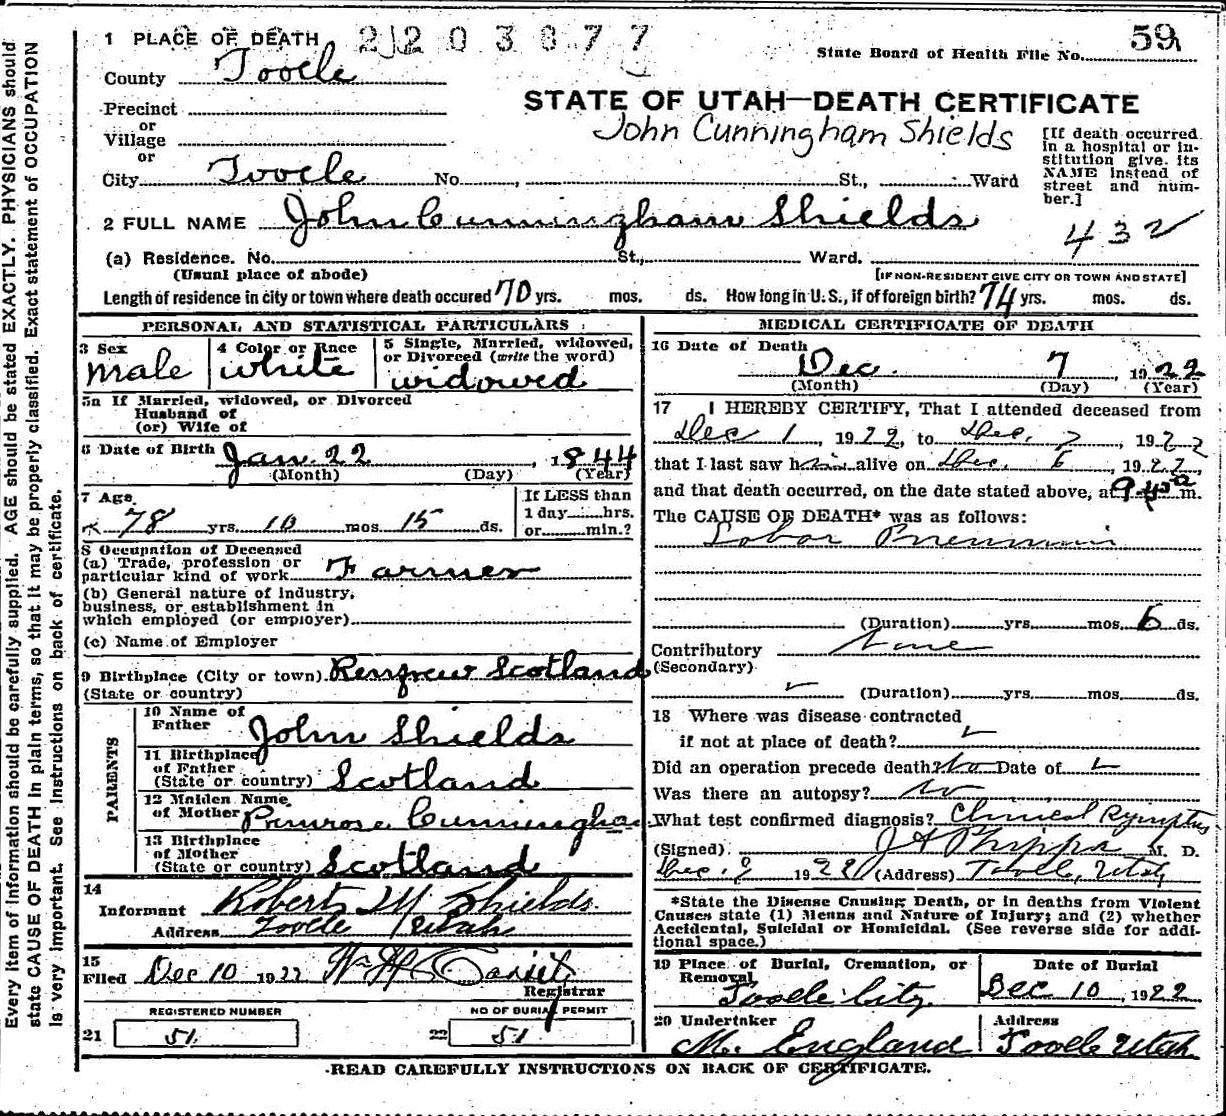 Every item of information should be carefully supplied. AGE should be stated EXACTLY. PHYSICIANS should
state CAUSE OF DEATH in plain terms, so that it may be properly classified. Exact statement of OCCUPATION
is very important. See instructions on back of certificate.
2203877
1 PLACE OF DEATH
State Board of Health File No. 59
County Tooele
Precinct
STATE OF UTAH—DEATH CERTIFICATE
or
Village
John Cunningham Shields
[If death occurred in a hospital or institution give its NAME instead of street and number.]
or
City Tooele No. , St., Ward
2 FULL NAME John Cunningham Shields
432
(a) Residence. No. St., Ward.
(Usual place of abode)
[IF NON-RESIDENT GIVE CITY OR TOWN AND STATE]
Length of residence in city or town where death occured 70 yrs. mos. ds. How long in U. S., if of foreign birth? 74 yrs. mos. ds.
PERSONAL AND STATISTICAL PARTICULARS
3 Sex
male
4 Color or Race
white
5 Single, Married, widowed, or Divorced (write the word)
widowed
5a If Married, widowed, or Divorced
Husband of
(or) Wife of
6 Date of Birth Jan. 22, 1844
(Month) (Day) (Year)
7 Age
78 yrs. 10 mos. 15 ds.
If LESS than
1 day hrs.
or min.?
8 Occupation of Deceased
(a) Trade, profession or
particular kind of work Farmer
(b) General nature of industry,
business, or establishment in
which employed (or employer)
(c) Name of Employer
9 Birthplace (City or town) Renfrew Scotland
(State or country)
PARENTS
10 Name of
Father John Shields
11 Birthplace
of Father
(State or country) Scotland
12 Maiden Name
of Mother Primrose Cunningham
13 Birthplace
of Mother
(State or country) Scotland
14
Informant Robert M Shields
Address Tooele Utah
15
Filed Dec 10 1922 Wm H
Registrar
REGISTERED NUMBER
21 51
NO OF BURIAL PERMIT
22 51
MEDICAL CERTIFICATE OF DEATH
16 Date of Death
Dec. 7, 1922
(Month) (Day) (Year)
17 I HEREBY CERTIFY, That I attended deceased from
Dec 1, 1922, to Dec. 7, 1922
that I last saw him alive on Dec. 6, 1922,
and that death occurred, on the date stated above, at 9 40a m.
The CAUSE OF DEATH* was as follows:
Lobar Pneumonia
(Duration) yrs. mos. 6 ds.
Contributory None
(Secondary)
(Duration) yrs. mos. ds.
18 Where was disease contracted
if not at place of death?
Did an operation precede death? No Date of
Was there an autopsy? no
What test confirmed diagnosis? Clinical Symptms
(Signed) J A Phipps M. D.
Dec. 9 1922 (Address) Tooele, Utah
*State the Disease Causing Death, or in deaths from Violent
Causes state (1) Means and Nature of Injury; and (2) whether
Accidental, Suicidal or Homicidal. (See reverse side for addi-
tional space.)
19 Place of Burial, Cremation, or
Removal
Tooele City.
Date of Burial
Dec 10, 1922
20 Undertaker
M. England
Address
Tooele Utah
READ CAREFULLY INSTRUCTIONS ON BACK OF CERTIFICATE.